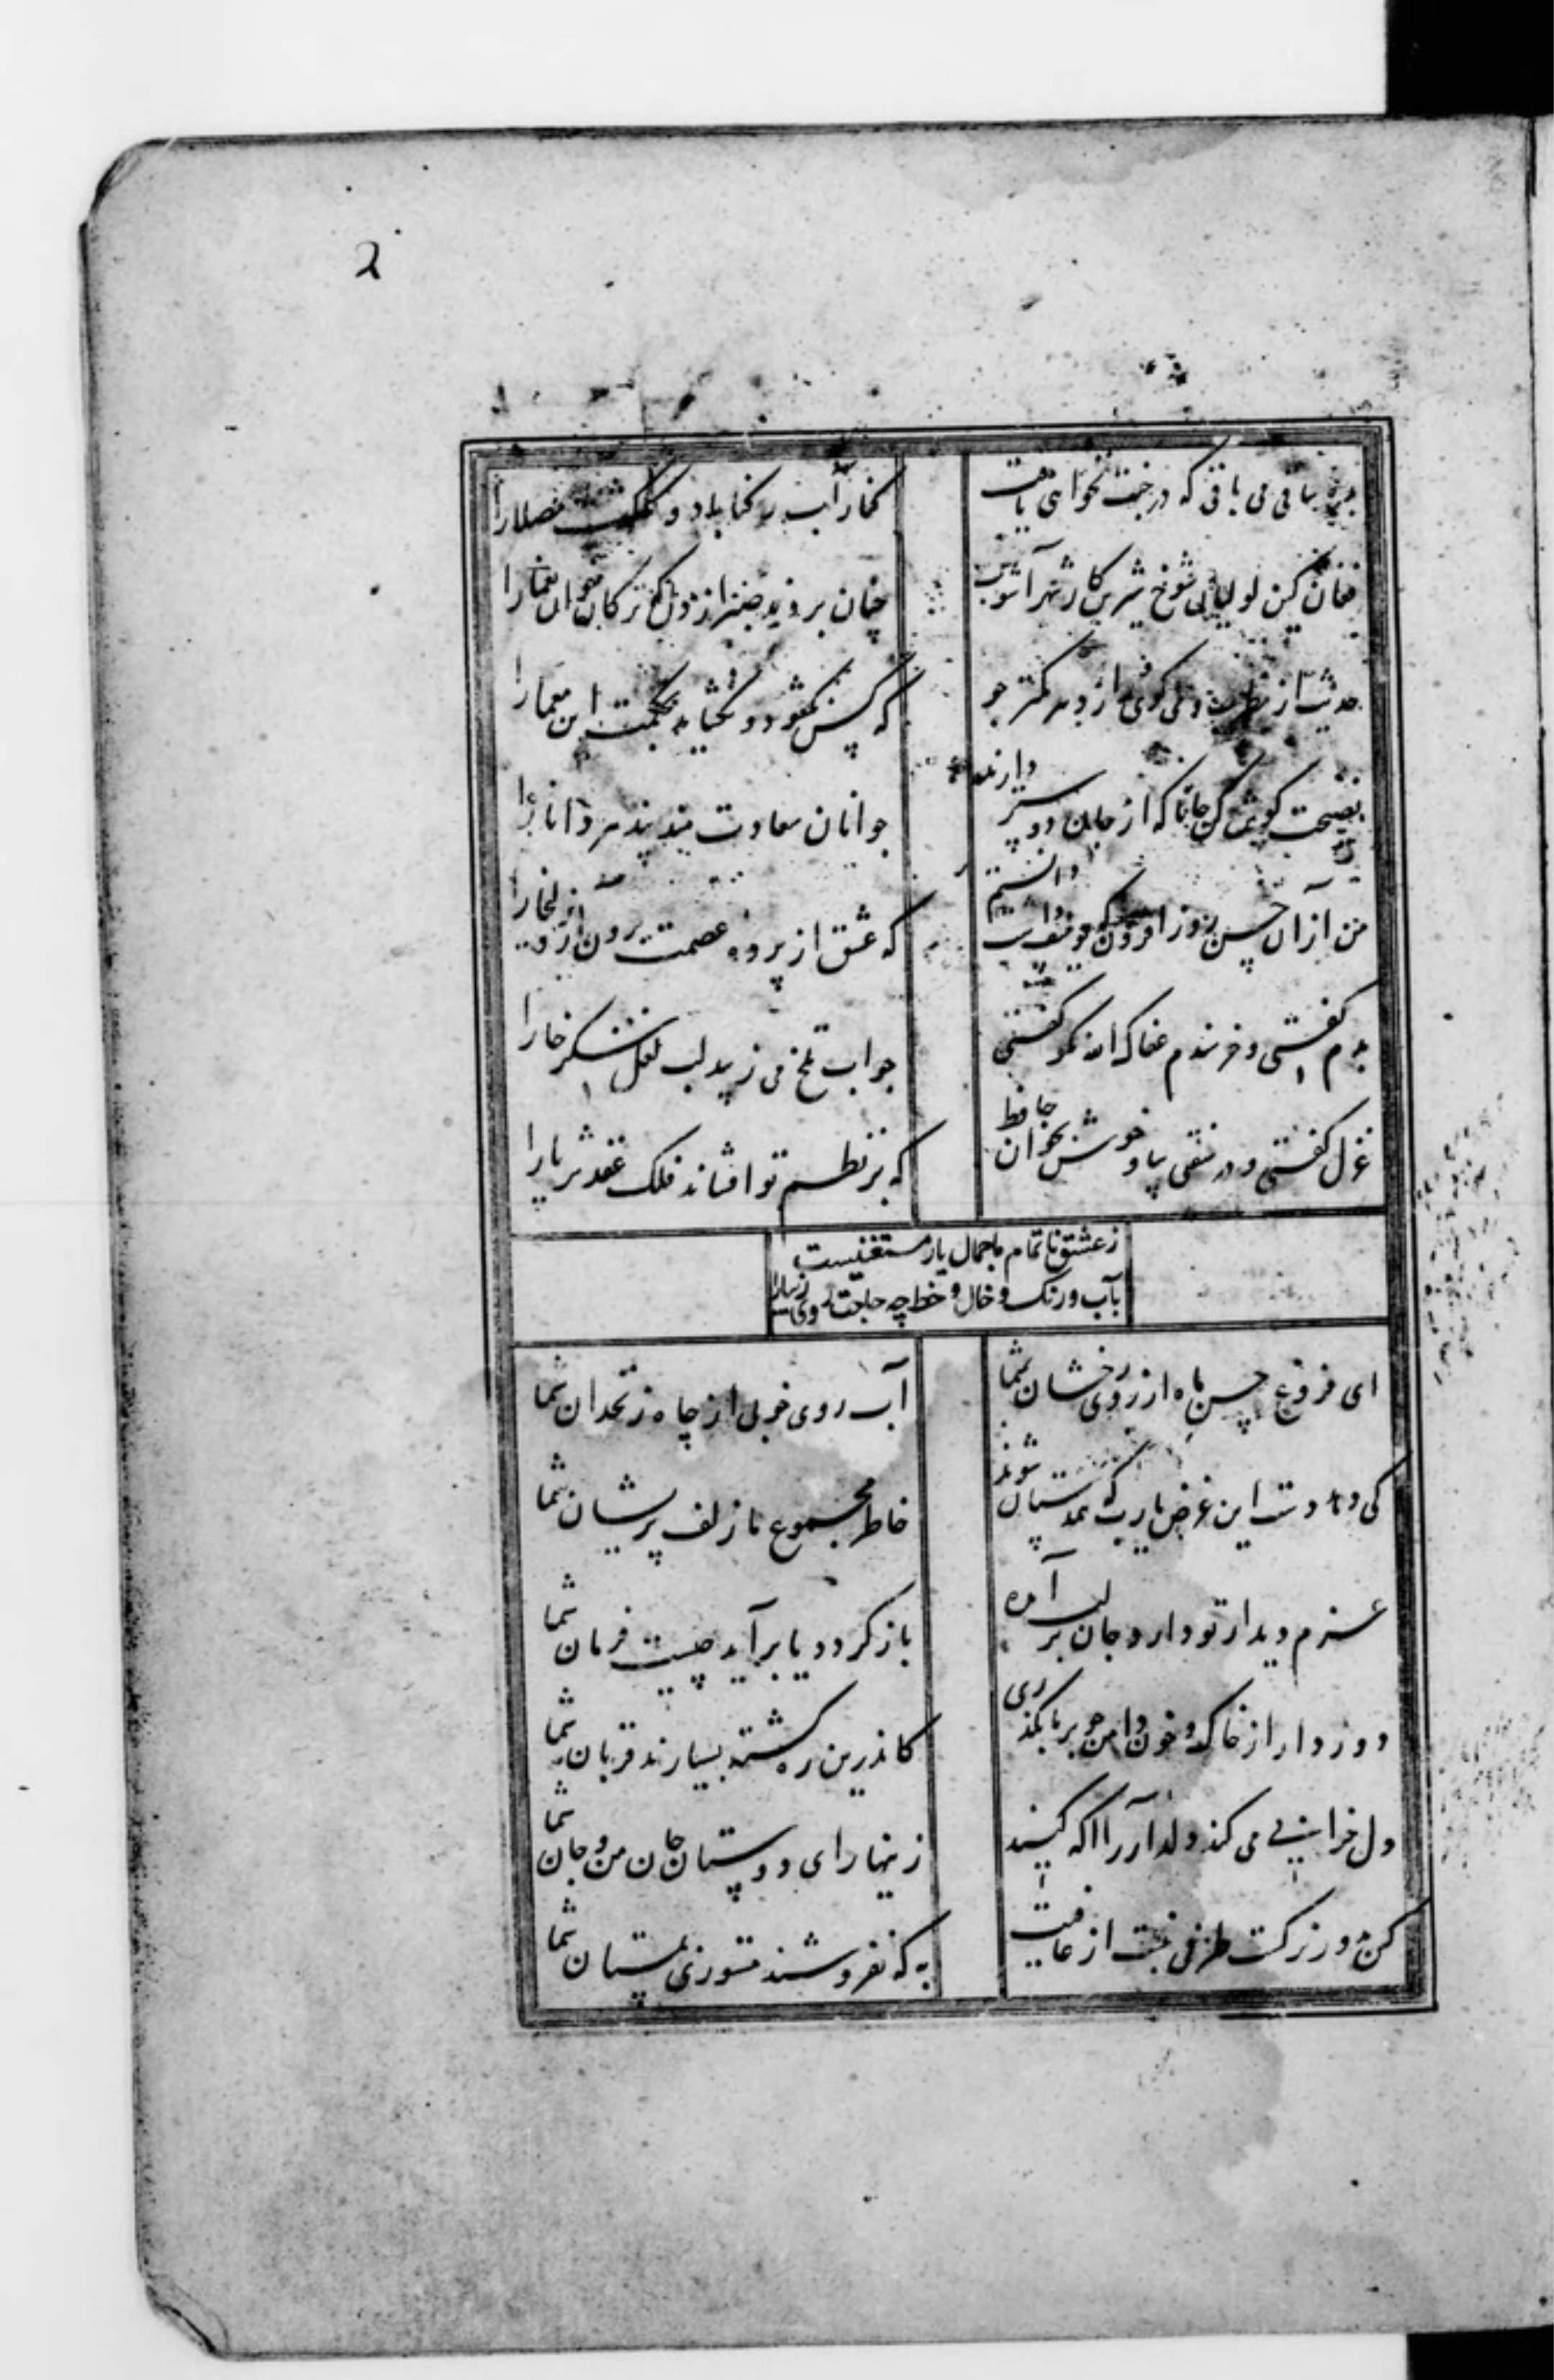 2
بده ساقی می باقی که در جنت نخواهی یافت
کنار آب رکناباد و گلگشت مصلا را
فغان کین لولیان شوخ شیرین کار شهر آشوب
چنان بردند صبر از دل که ترکان خوان یغما را
حدیث از مطرب و می گوی و راز دهر کمتر جو
که کس نگشود و نگشاید بحکمت این معما را
نصیحت گوش کن جانا که از جان دوستر دارند
جوانان سعادت مند پند پیر دانا را
من از آن حسن روز افزون که یوسف داشت دانستم
که عشق از پرده عصمت برون آرد زلیخا را
بدم گفتی و خرسندم عفاک الله نکو گفتی
جواب تلخ می زیبد لب لعل شکر خا را
غزل گفتی و در سفتی بیا و خوش بخوان حافظ
که بر نظم تو افشاند فلک عقد ثریا را
ز عشق ناتمام ما جمال یار مستغنیست
بآب و رنگ و خال و خط چه حاجت روی زیبا را
ای فروغ حسن ماه از روی رخشان شما
آب روی خوبی از چاه زنخدان شما
کی دهد دست این غرض یارب که همدستان شوند
خاطر مجموع ما زلف پریشان شما
عزم دیدار تو دارد جان بر لب آمده
باز گردد یا برآید چیست فرمان شما
دور دار از خاک و خون دامن چو بر ما بگذری
کاندرین ره کشته بسیارند قربان شما
دل خرابی می کند دلدار را آگه کنید
زینهار ای دوستان جان من و جان شما
کس بدور نرگست طرفی نبست از عافیت
به که نفروشند مستوری بمستان شما